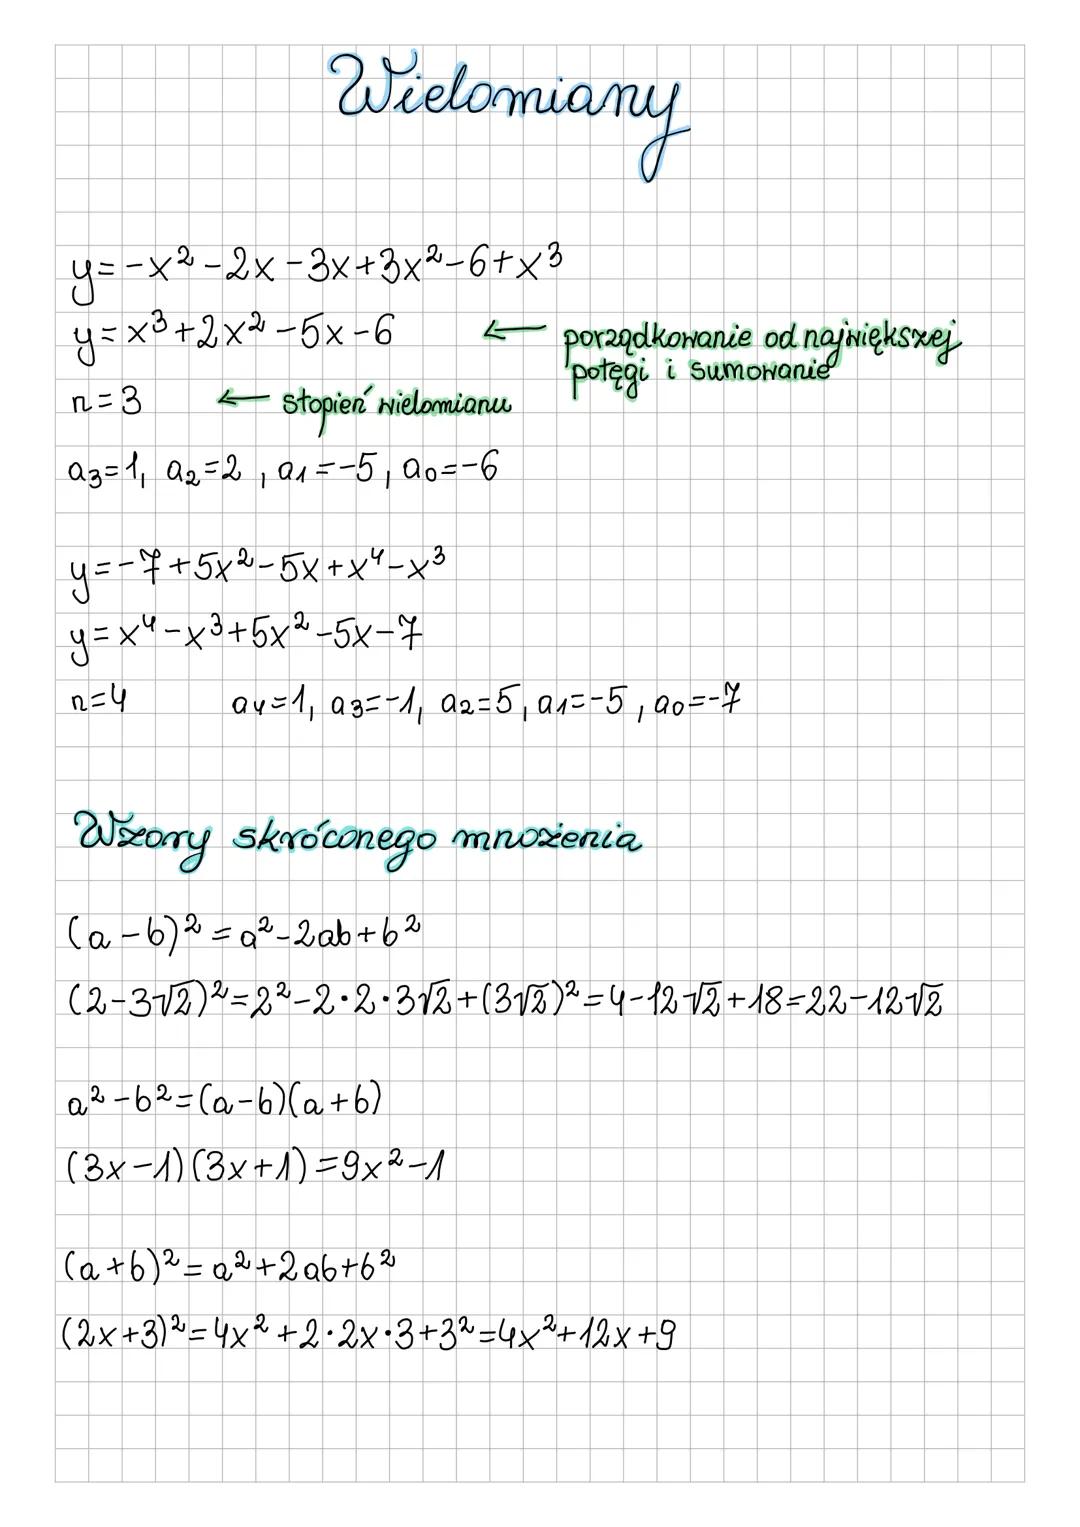 Wielomiany
y=-x²-2x-3x+3x²-6+x³
y=x³+2x²-5x-6 ← porządkowanie od największej
potęgi i sumowanie
n=3 ← stopień wielomianu
a₃=1, a₂=2, a₁=-5, a₀=-6
y=-7+5x²-5x+x⁴-x³
y=x⁴-x³+5x²-5x-7
n=4 a₄=1, a₃=-1, a₂=5, a₁=-5, a₀=-7
Wzory skróconego mnożenia
(a-b)²=a²-2ab+b²
(2-3√2)²=2²-2·2·3√2+(3√2)²=4-12√2+18=22-12√2
a²-b²=(a-b)(a+b)
(3x-1)(3x+1)=9x²-1
(a+b)²=a²+2ab+b²
(2x+3)²=4x²+2·2x·3+3²=4x²+12x+9